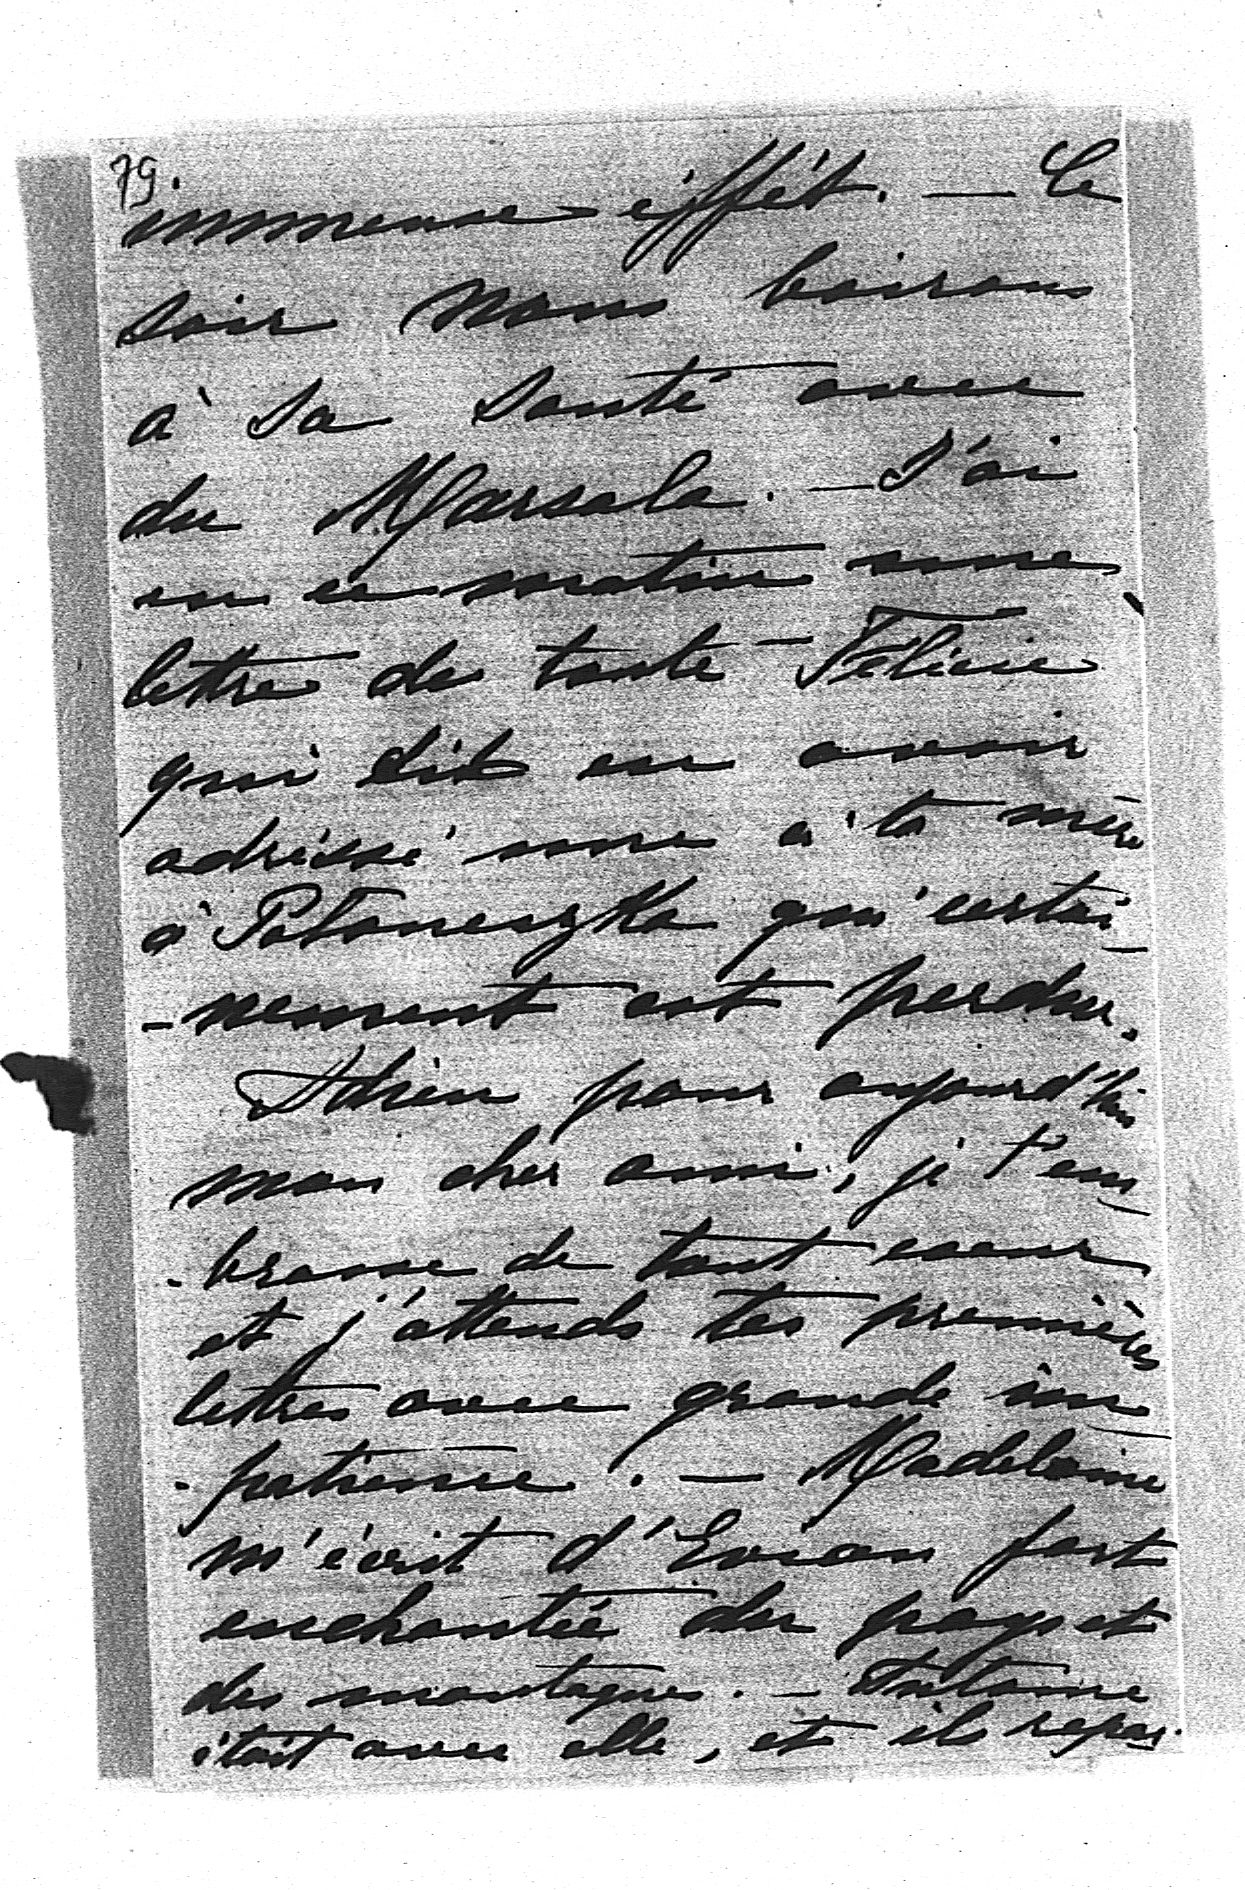 79.
immense éffét. — Ce
soir nous boirons
à sa santé avec
du Marsala. — J'ai
eu ce matin une
lettre de tante Félicie
qui dit en avoir
adréssé une à ta mère
à qui certai-
-nement est perdue.
Adieu pour aujourd'hui
mon cher ami, je t'em-
-brasse de tout coeur
et j'attends tes premières
lettres avec grande im-
-patience. — Madeleine
m'écrit d'Evian fort
enchantée du pays et
des montagnes. — Antoine
était avec elle, et ils repas-